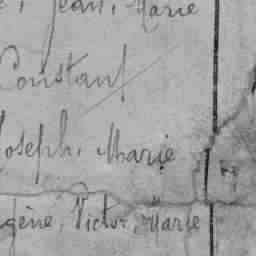 , Jean, Marie
Constant
Joseph, Marie
gène, Victor, Marie